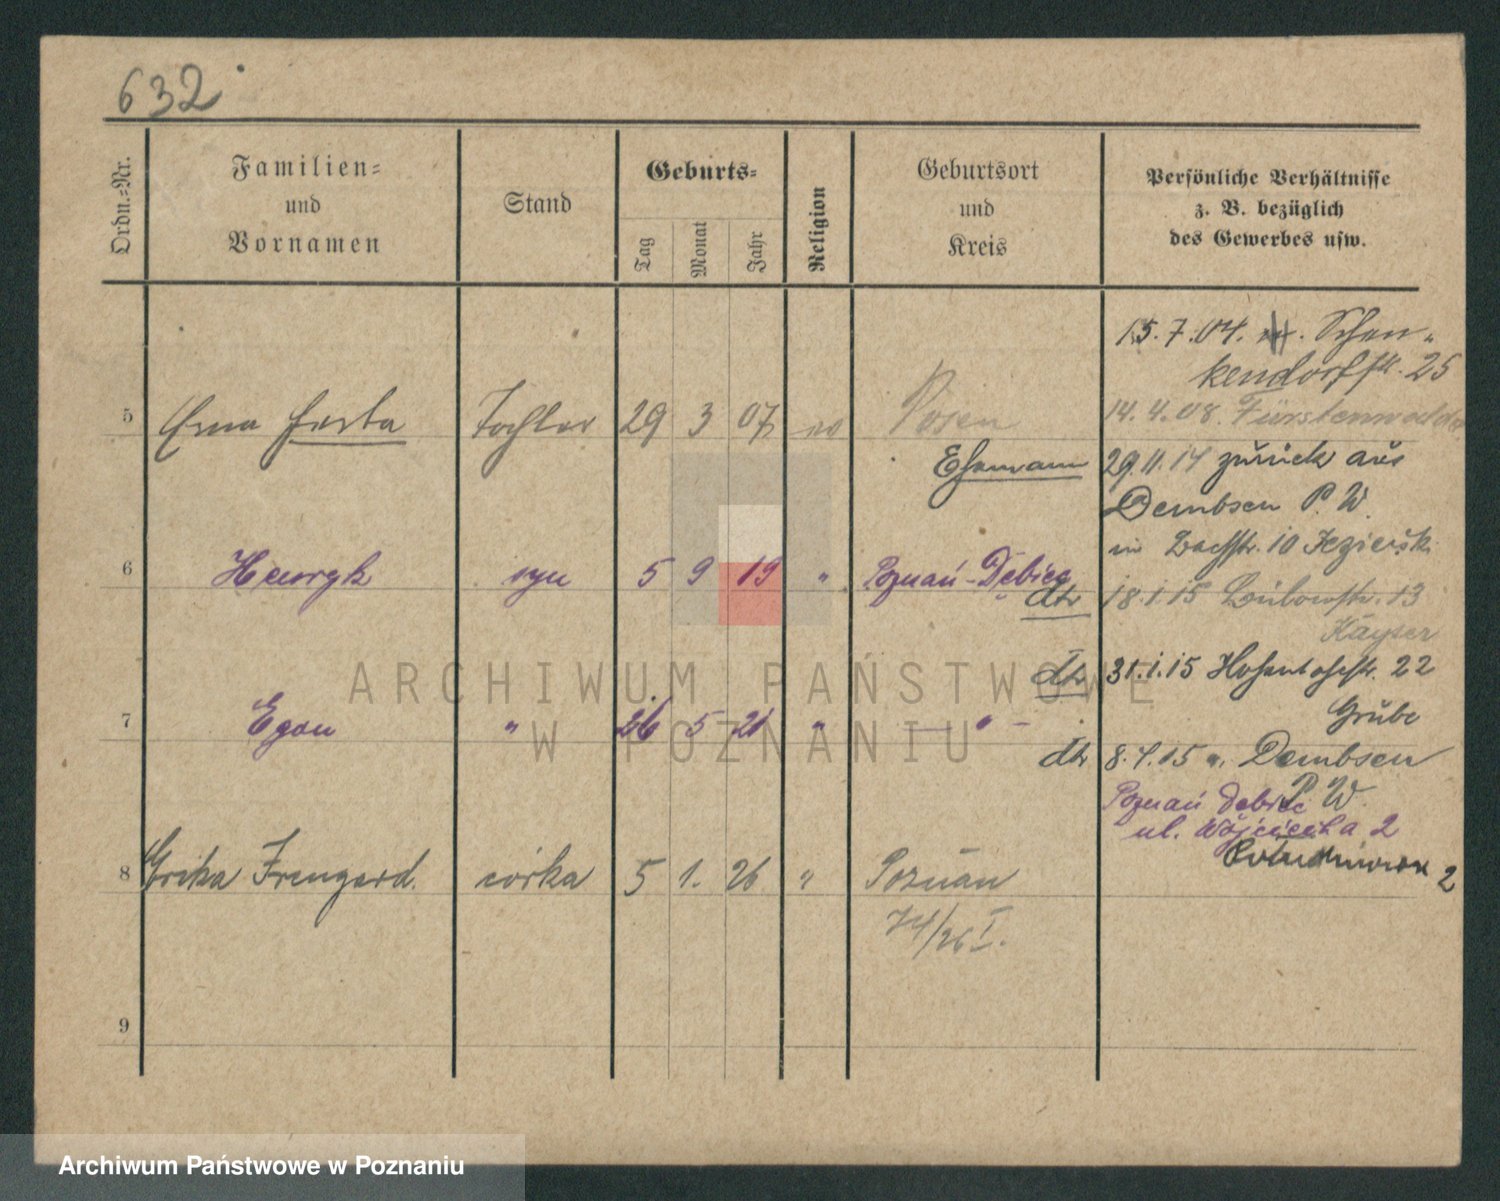 632
Ordn.-Nr.
Familien-
und
Vornamen
Stand
Geburts-
Tag
Monat
Jahr
Religion
Geburtsort
und
Kreis
Persönliche Verhältnisse
z. B. bezüglich
des Gewerbes usw.
15.7.04. Schen-
kendorfstr. 25
5 Erna Herta Tochter 29 3 07 ev Posen
14.4.08. Fürstenwalde
Ehemann 29.11.14 zurück aus
Dembsen P. W.
in Bachstr. 10
6 Henryk syn 5 9 19 " Poznań-Dębiec
dto 18.1.15 Bülowstr. 13
Kayser
dto 31.1.15 Hohenlohestr. 22
Grube
7 Egon " 26 5 21 " — " —
dto 8.4.15 n. Dembsen
P. W.
Poznań Dębiec
ul. Wójciecha 2
8 Erika Irmgard. córka 5 1. 26 " Poznań
2
74/26 I.
9
ARCHIWUM PAŃSTWOWE
W POZNANIU
Archiwum Państwowe w Poznaniu